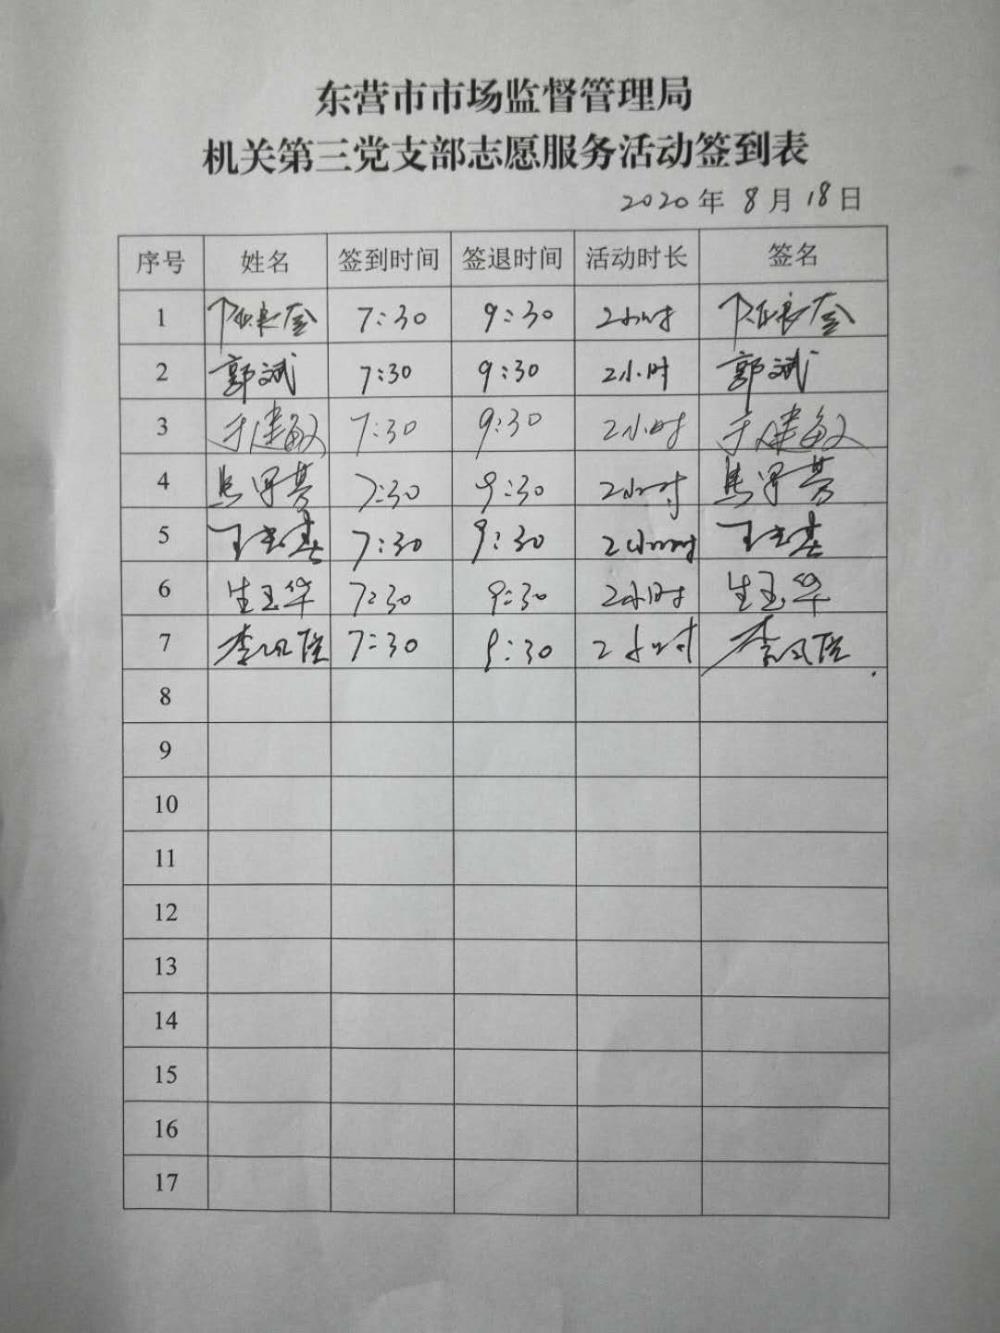 东营市市场监督管理局
机关第三党支部志愿服务活动签到表
2020年8月18日
序号 姓名 签到时间 签退时间 活动时长 签名
1 7:30 9:30 2小时
2 郭斌 7:30 9:30 2小时 郭斌
3 于建敏 7:30 9:30 2小时 于建敏
4 7:30 9:30 2小时
5 7:30 9:30 2小时
6 生玉华 7:30 9:30 2小时 生玉华
7 7:30 9:30 2小时
8
9
10
11
12
13
14
15
16
17